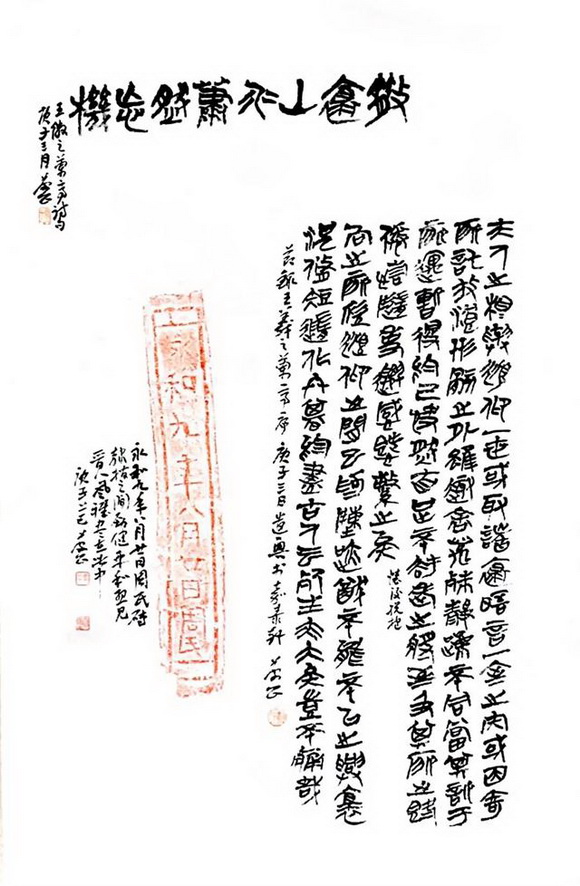 散懷山水蕭然忘機
王徽之蘭亭詩句
庚子三月
夫人之相與俯仰一世或取諸懷晤言一室之內或因寄
所託放浪形骸之外雖趣舍萬殊靜躁不同當其欣于
所遇暫得於己快然自足不知老之將至及其所之既
倦情隨事遷感慨係之矣
向之所欣俯仰之間以為陳迹猶不能不以之興懷
況脩短隨化終期於盡古人云死生亦大矣豈不痛哉
節錄王羲之蘭亭序 庚子三月道興書
永和九年八月廿日周氏
永和九年八月廿日周氏磚
之間
晉人風
庚子